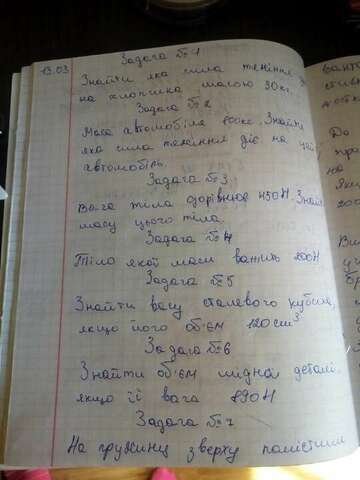 13.03
Задача №1
Знайти яка сила тяжіння
на хлопчика масою 30кг.
Задача №2
Маса автомобіля Знайти
яка сила тяжіння діє на цей
автомобіль.
Задача №3
Вага тіла дорівнює 450Н. Знай
масу цього тіла.
Задача №4
Тіло якої маси важить 200Н
Задача №5
Знайти вагу сталевого кубика,
якщо його об'єм 120см³
Задача №6
Знайти об'єм мідної деталі,
якщо її вага 890Н
Задача №7
На пружину зверху помістили